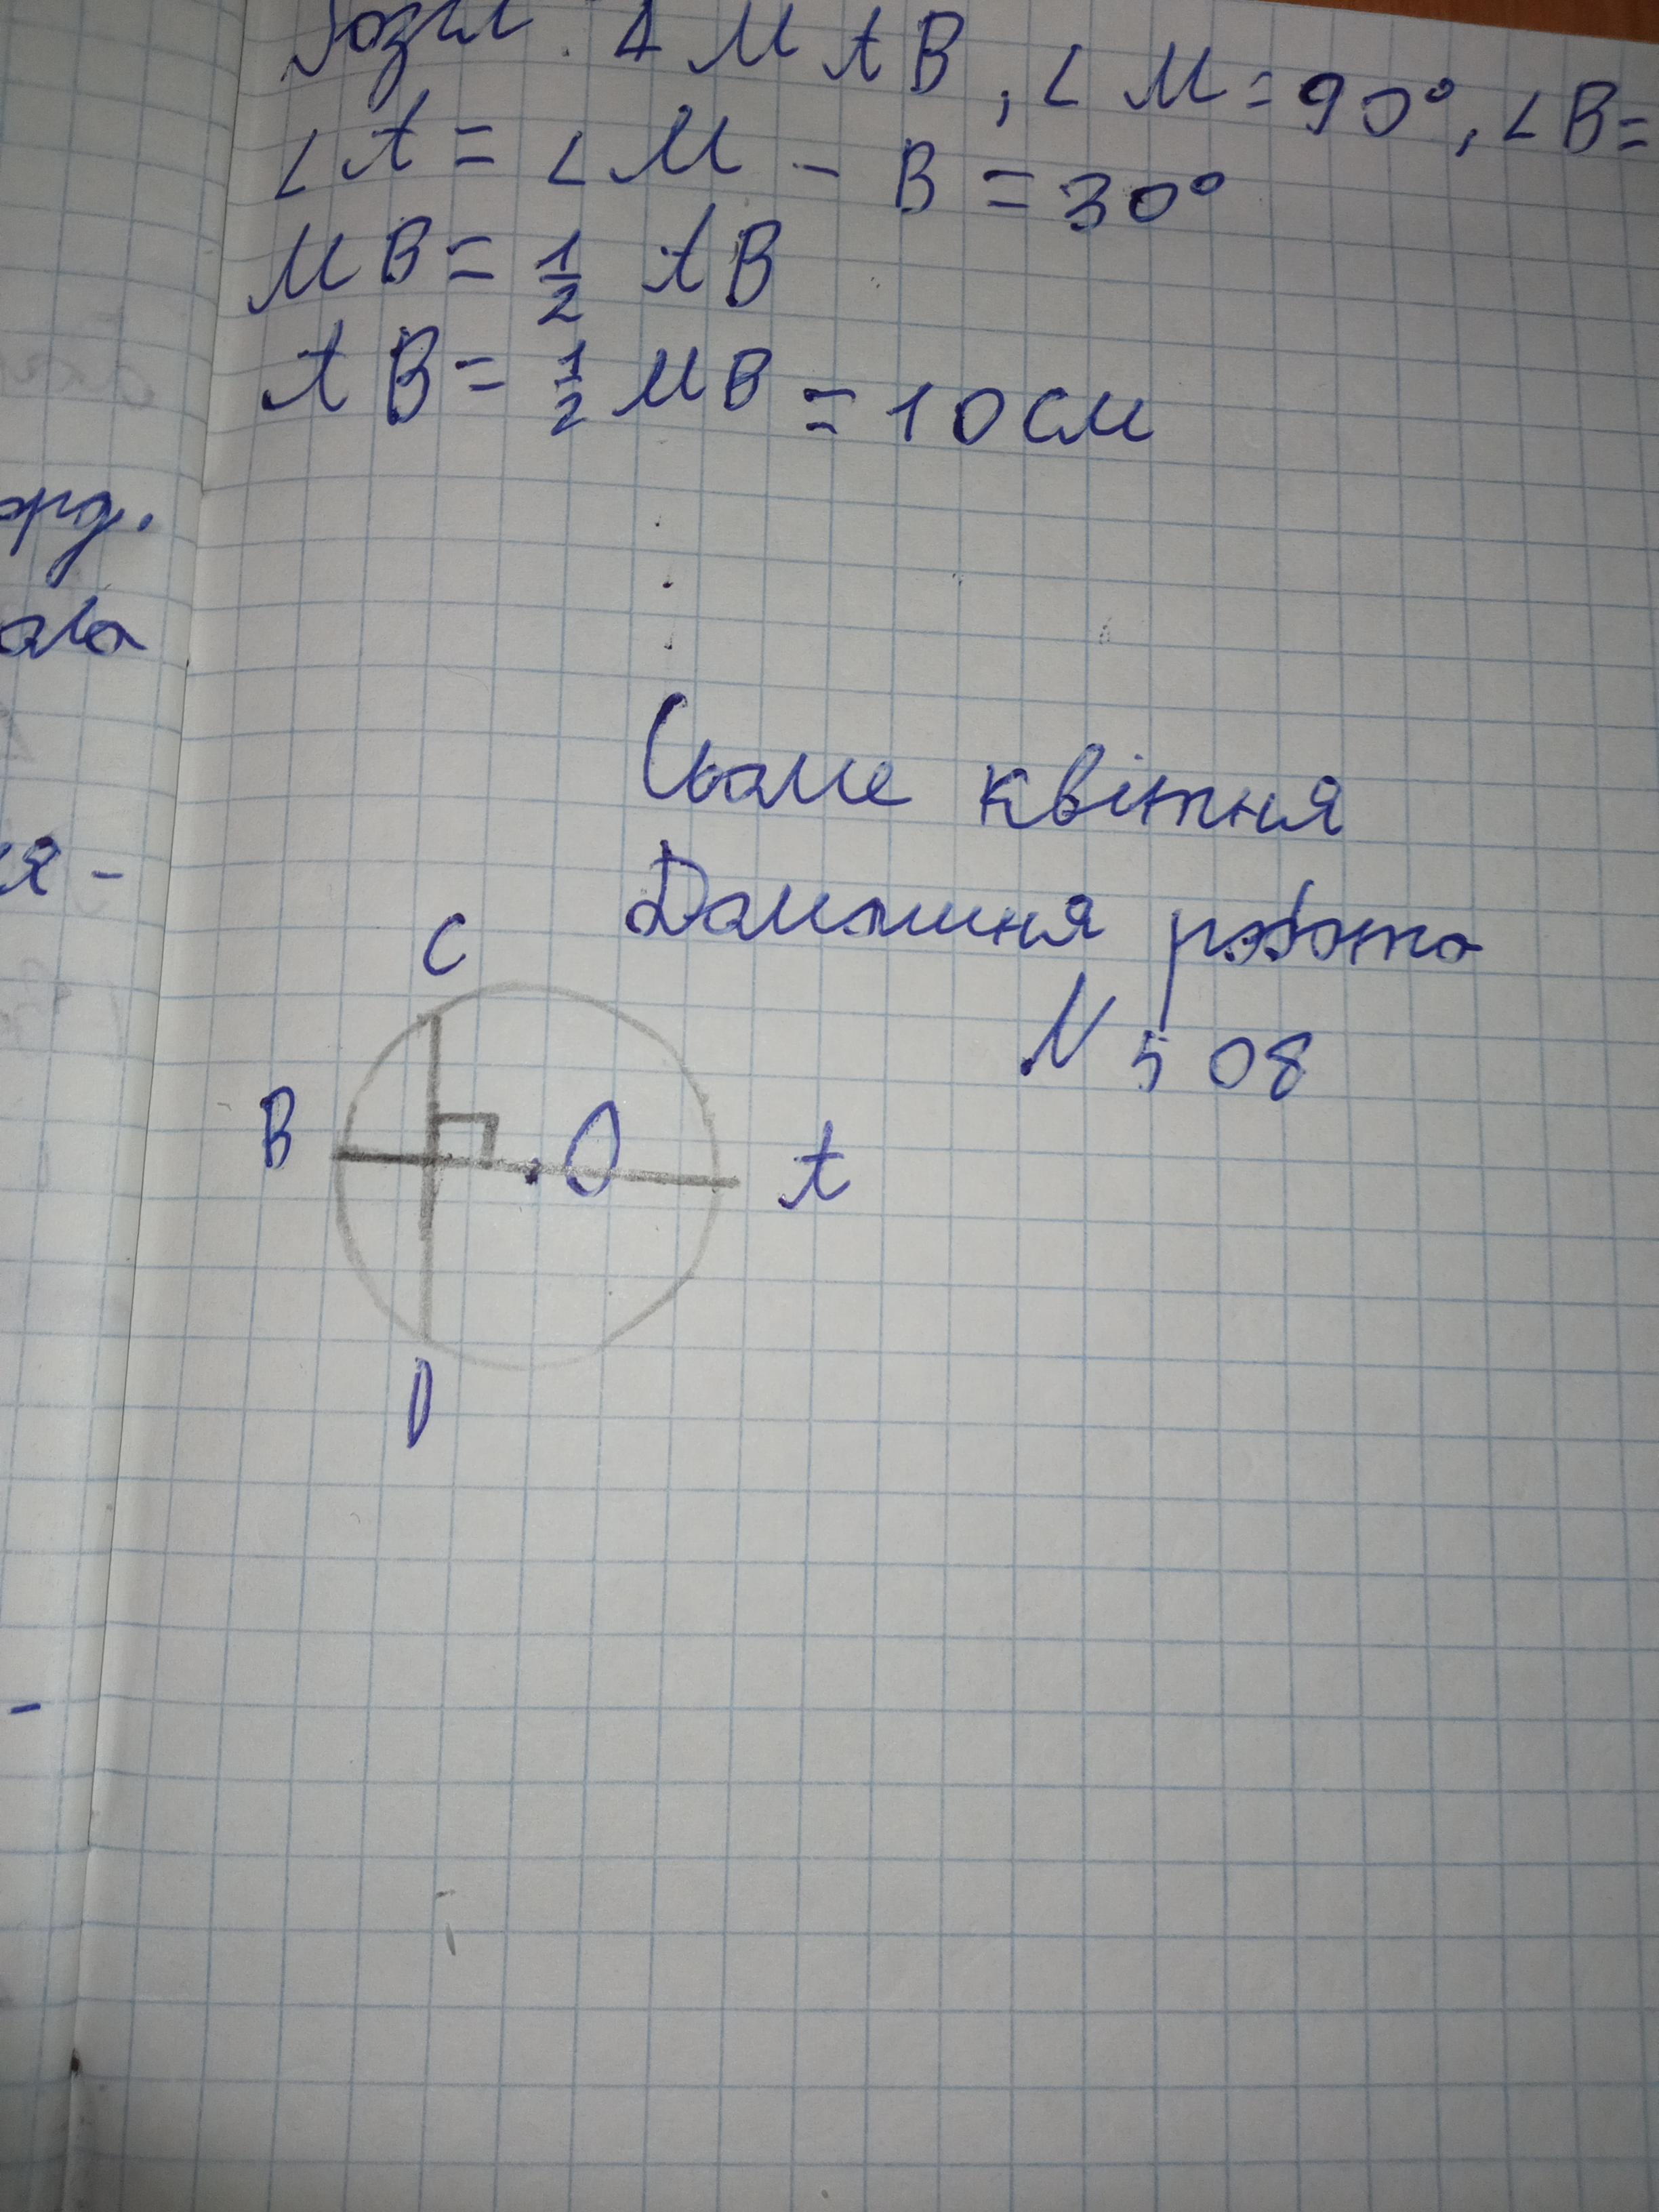 Δ M A B, ∠ M = 90°, ∠ B =
∠ A = ∠ M - B = 30°
M B = 1/2 A B
A B = 1/2 M B = 10 см
орд.
ала
я -
Сьоме квітня
Домашня робота
N 508
C
B
O
A
D
-